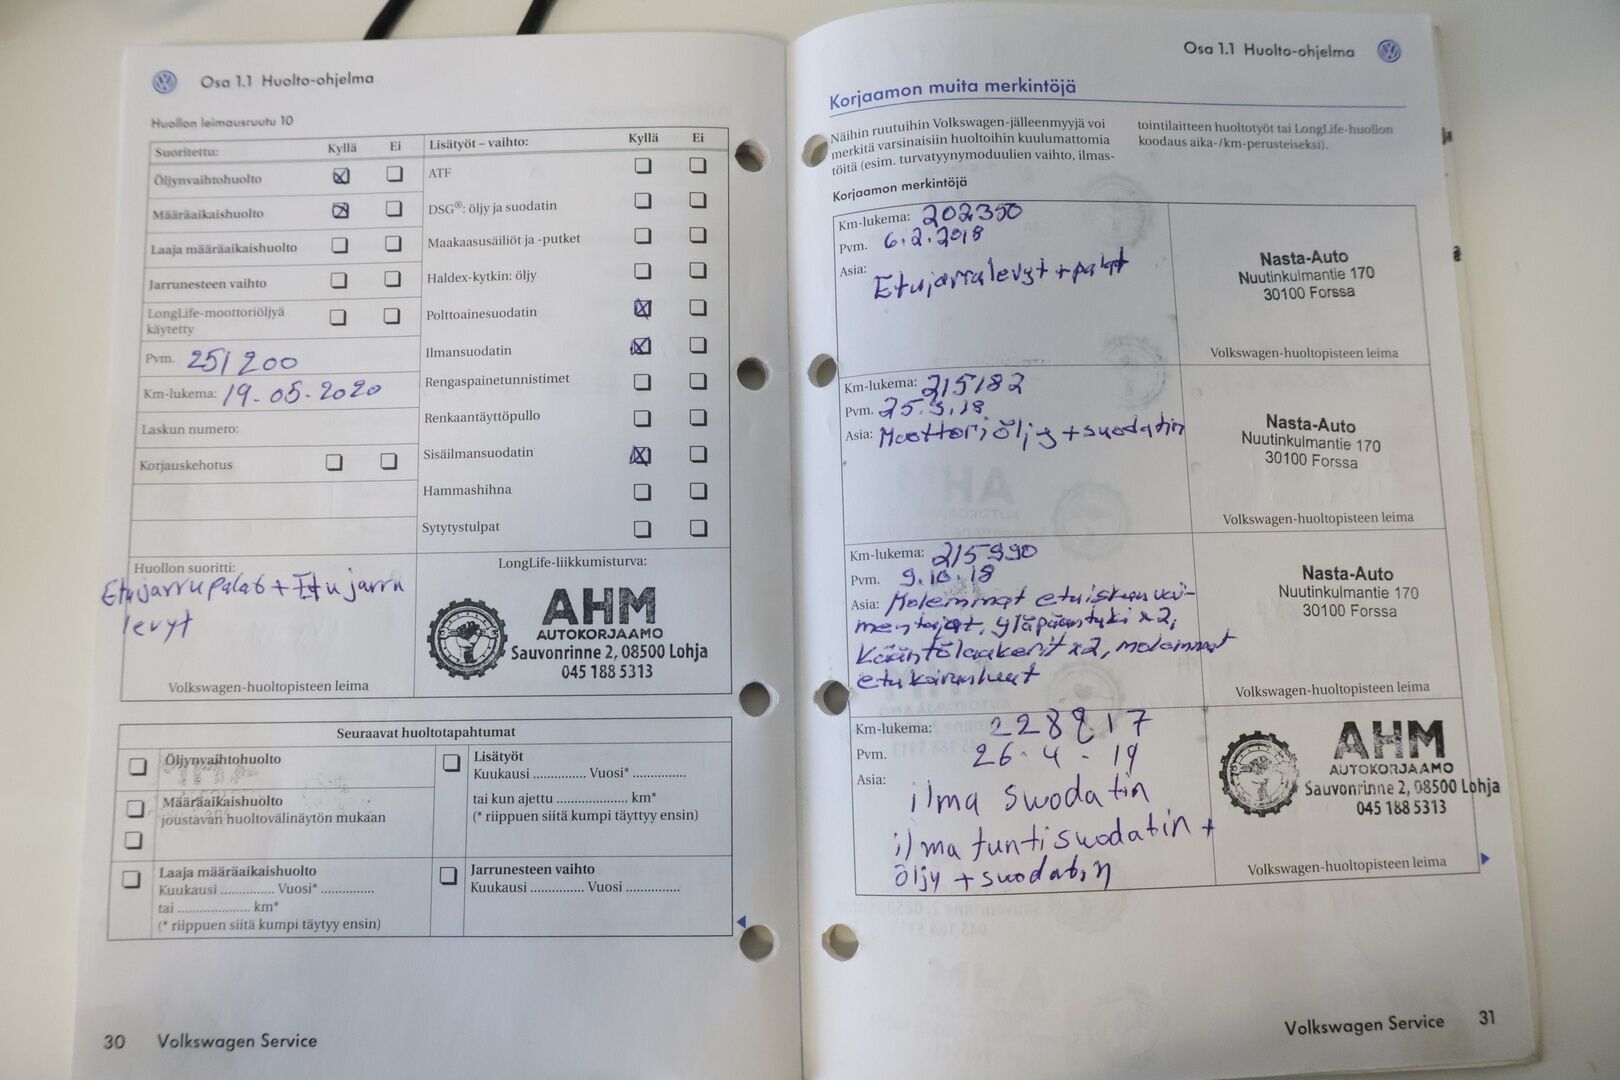 Osa 1.1 Huolto-ohjelma
Huollon leimausruutu 10
Suoritettu: Kyllä Ei
Öljynvaihtohuolto
Määräaikaishuolto
Laaja määräaikaishuolto
Jarrunesteen vaihto
LongLife-moottoriöljyä
käytetty
Pvm. 251200
Km-lukema: 19-05-2020
Laskun numero:
Korjauskehotus
Lisätyöt – vaihto: Kyllä Ei
ATF
DSG®: öljy ja suodatin
Maakaasusäiliöt ja -putket
Haldex-kytkin: öljy
Polttoainesuodatin
Ilmansuodatin
Rengaspainetunnistimet
Renkaantäyttöpullo
Sisäilmansuodatin
Hammashihna
Sytytystulpat
Huollon suoritti:
Etujarrupalat + Etujarru
levyt
Volkswagen-huoltopisteen leima
LongLife-liikkumisturva:
AHM
AUTOKORJAAMO
Sauvonrinne 2, 08500 Lohja
045 188 5313
Seuraavat huoltotapahtumat
Öljynvaihtohuolto
Määräaikaishuolto
joustavan huoltovälinäytön mukaan
Laaja määräaikaishuolto
Kuukausi .............. Vuosi* ..............
tai ................... km*
(* riippuen siitä kumpi täytyy ensin)
Lisätyöt
Kuukausi .............. Vuosi* ..............
tai kun ajettu ................... km*
(* riippuen siitä kumpi täyttyy ensin)
Jarrunesteen vaihto
Kuukausi .............. Vuosi ..............
30 Volkswagen Service
Osa 1.1 Huolto-ohjelma
Korjaamon muita merkintöjä
Näihin ruutuihin Volkswagen-jälleenmyyjä voi
merkitä varsinaisiin huoltoihin kuulumattomia
töitä (esim. turvatyynymoduulien vaihto, ilmas-
tointilaitteen huoltotyöt tai LongLife-huollon
koodaus aika-/km-perusteiseksi).
Korjaamon merkintöjä
Km-lukema: 202350
Pvm. 6.2.2018
Asia: Etujarralevyt + palat
Nasta-Auto
Nuutinkulmantie 170
30100 Forssa
Volkswagen-huoltopisteen leima
Km-lukema: 215182
Pvm. 25.9.18
Asia: Moottoriöljy + suodatin
Nasta-Auto
Nuutinkulmantie 170
30100 Forssa
Volkswagen-huoltopisteen leima
Km-lukema: 215990
Pvm. 9.10.18
Asia: Molemmat etuiskunvai-
mentajat, yläpääntuki x2,
Kääntölaakerit x2, molemmat
etukoiranluut
Nasta-Auto
Nuutinkulmantie 170
30100 Forssa
Volkswagen-huoltopisteen leima
Km-lukema: 228817
Pvm. 26-4-19
Asia: ilma suodatin
ilma tuntisuodatin +
öljy + suodatin
AHM
AUTOKORJAAMO
Sauvonrinne 2, 08500 Lohja
045 188 5313
Volkswagen-huoltopisteen leima
Volkswagen Service 31